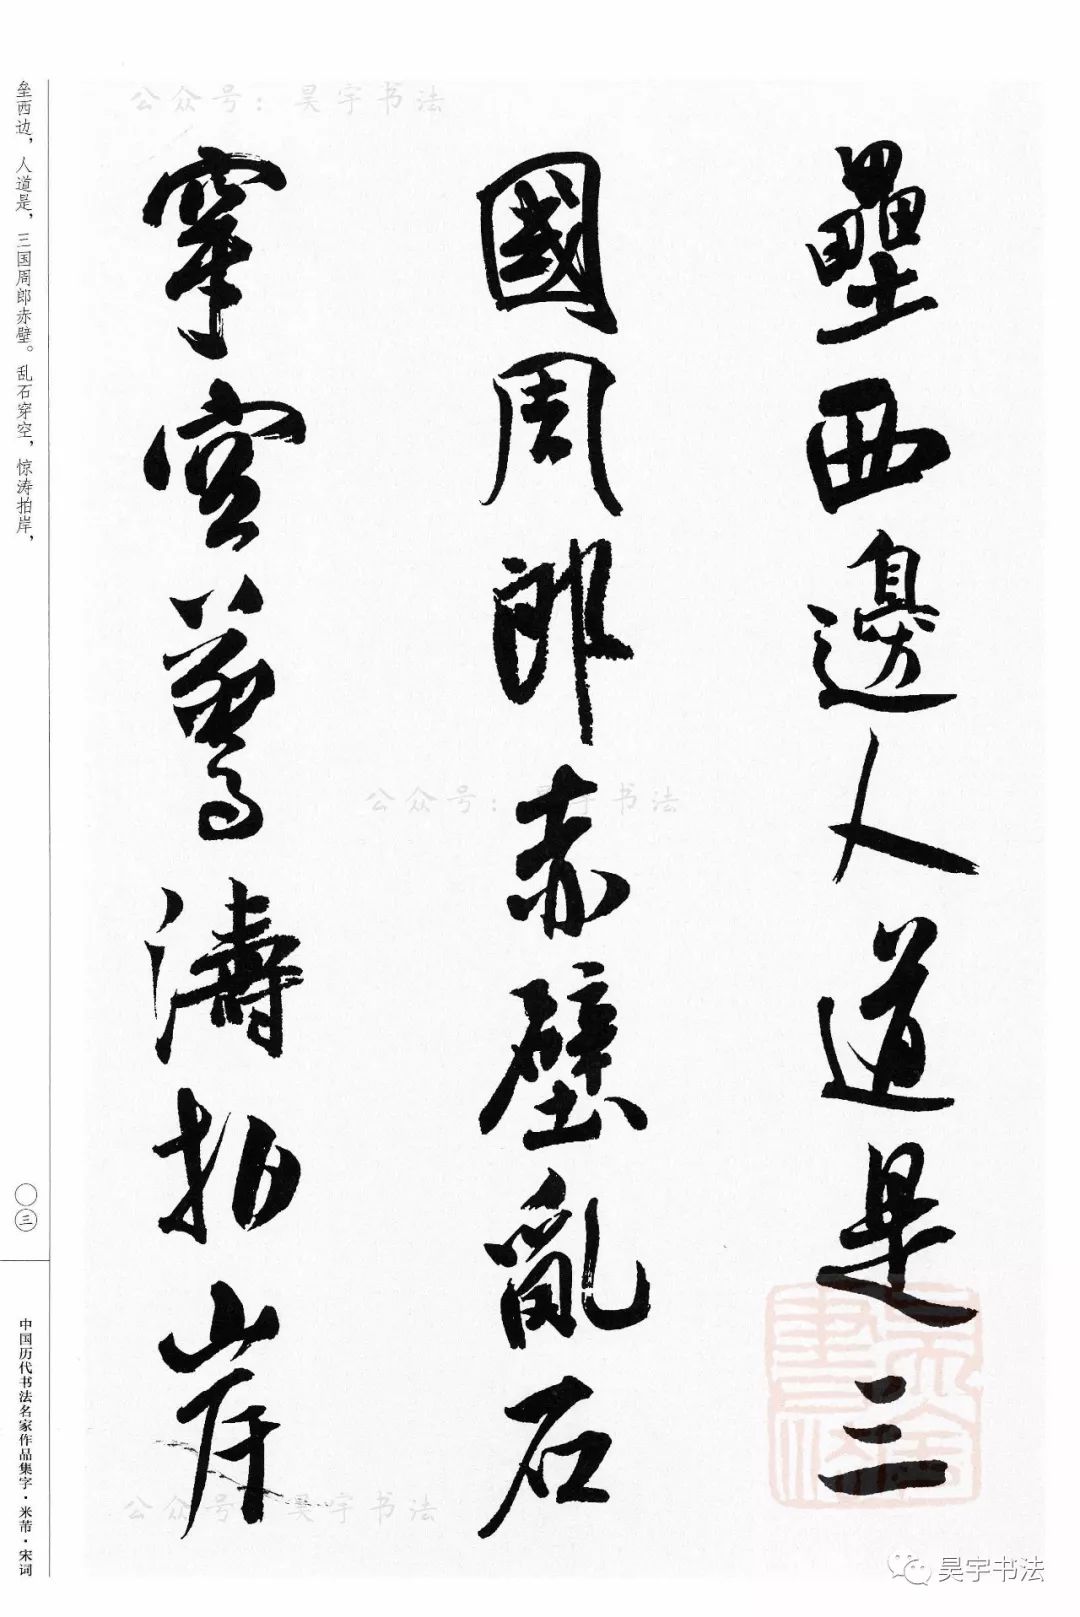 壘西邊人道是三
國周郎赤壁亂石
穿空驚濤拍岸
垒西边，人道是，三国周郎赤壁。乱石穿空，惊涛拍岸，
〇三
中国历代书法名家作品集字·米芾·宋词
公众号：昊宇书法
公众号：昊宇书法
公众号：昊宇书法
昊宇书法